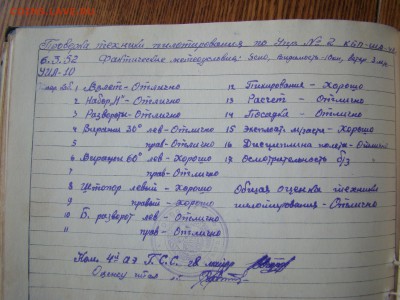 Проверка техники пилотирования по Упр № 2 КБП-ША-
6.3.52 Фактические метеоусловия: ясно, видимость-10км, ветер 3 м/с
УИЛ-10
1 Взлет - Отлично
2 Набор "Н" - Отлично
3 Развороты - Отлично
4 Виражи 30° лев - Отлично
5 прав - Отлично
6 Виражи 60° лев - Хорошо
7 прав - Отлично
8 Штопор левый - Хорошо
9 правый - Хорошо
10 Б. разворот лев - Отлично
11 прав - Отлично
12 Пикирование - Хорошо
13 Расчет - Отлично
14 Посадка - Отлично
15 Эксплоат м/части - Хорошо
16 Дисциплина полета - Отлично
17 Осмотрительность б/з
Общая оценка техники
пилотирования - Отлично
Ком. 4й аэ Г.С.С. гв майор